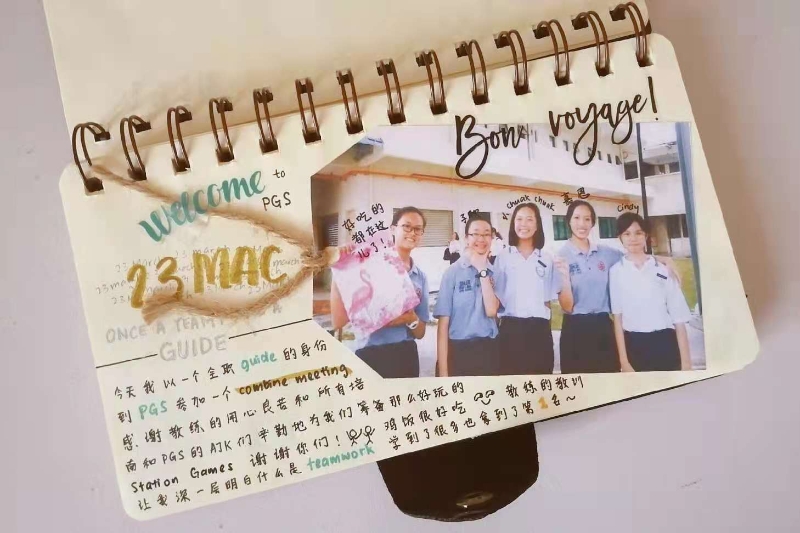 Bon voyage!
welcome to
PGS
23 MAC
ONCE A
GUIDE
好吃的
都在这
儿了！
chuak chuak
嘉恩
cindy
今天我以一个全职 guide 的身份
到 PGS 参加一个 combine meeting
感谢教练的用心良苦和所有培
南和PGS的AJK们辛勤地为我们筹备那么好玩的
Station Games 谢谢你们！ 鸡饭很好吃 教练的教训
让我深一层明白什么是 teamwork 学到了很多也拿到了第2名～